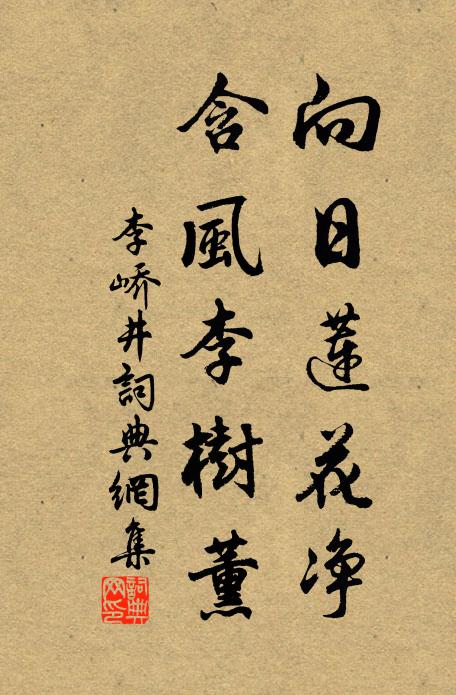 向日蓮花净
含風李樹薰
李嶠井詞典網集
詞典
网印